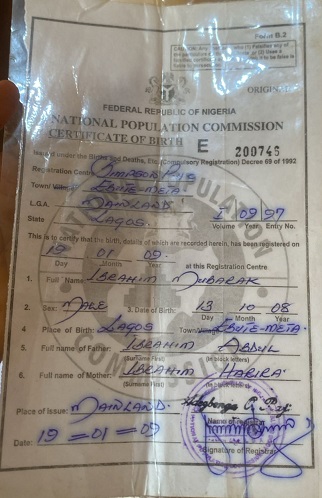 Form B.2
ORIGINAL
FEDERAL REPUBLIC OF NIGERIA
NATIONAL POPULATION COMMISSION
CERTIFICATE OF BIRTH E 200746
Issued under the Births and Deaths, Etc. (Compulsory Registration) Decree 69 of 1992
Registration Centre SIMPSON
Town/Village EBUTE-META
L.G.A. MAINLAND
State LAGOS. I 09 97
Volume Year Entry No.
This is to certify that the birth, details of which are recorded herein, has been registered on
19 01 09. at this Registration Centre
Day Month Year
1. Full Name IBRAHIM MUBARAK
2. Sex: MALE 3. Date of Birth: 13 10 08
Day Month Year
4 Place of Birth: LAGOS Town/Village EBUTE-META.
5. Full name of Father: IBRAHIM ABDUL
(Surname First) (in block letters)
6. Full name of Mother: IBRAHIM HABIRA
(Surname First) (in block letters)
Place of Issue: MAINLAND.
Name of Registrar
Date: 19-01-09
Signature of Registrar